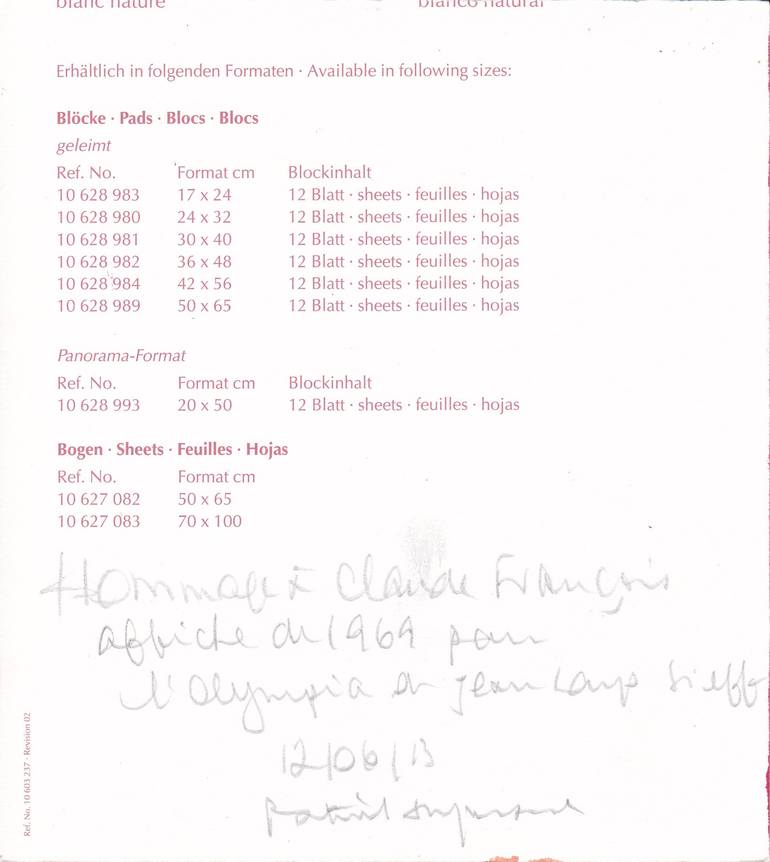 blanc nature blanco natural
Erhältlich in folgenden Formaten · Available in following sizes:
Blöcke · Pads · Blocs · Blocs
geleimt
Ref. No. Format cm Blockinhalt
10 628 983 17 x 24 12 Blatt · sheets · feuilles · hojas
10 628 980 24 x 32 12 Blatt · sheets · feuilles · hojas
10 628 981 30 x 40 12 Blatt · sheets · feuilles · hojas
10 628 982 36 x 48 12 Blatt · sheets · feuilles · hojas
10 628 984 42 x 56 12 Blatt · sheets · feuilles · hojas
10 628 989 50 x 65 12 Blatt · sheets · feuilles · hojas
Panorama-Format
Ref. No. Format cm Blockinhalt
10 628 993 20 x 50 12 Blatt · sheets · feuilles · hojas
Bogen · Sheets · Feuilles · Hojas
Ref. No. Format cm
10 627 082 50 x 65
10 627 083 70 x 100
Hommage à Claude François
affiche de 1969 pour
l'Olympia de Jean Loup Sieff
12/06/13
Ref. No. 10 603 237 · Revision 02